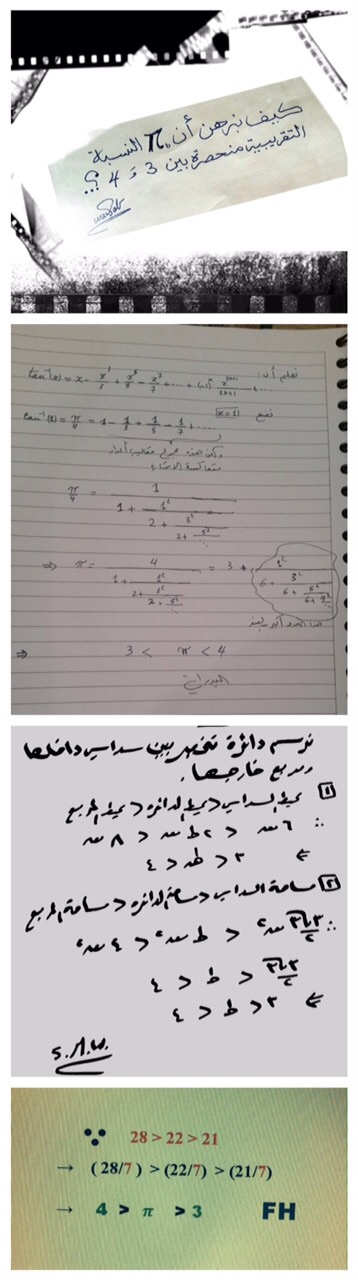 كيف نبرهن أن "π" النسبة
التقريبية منحصرة بين 3 و 4 ؟؟
نعلم أن:
tan⁻¹(x) = x - x³/3 + x⁵/5 - x⁷/7 + ... + (-1)ⁿ x²ⁿ⁺¹/2n+1 + ...
نضع x=1
tan⁻¹(1) = π/4 = 1 - 1/3 + 1/5 - 1/7 + ...
π/4 = 1/(1 + 1²/(2 + 3²/(2 + 5²/⋱)))
⇒ π = 4/(1 + 1²/(2 + 3²/(2 + 5²/⋱))) = 3 + 1²/(6 + 3²/(6 + 5²/(6 + 7²/⋱)))
⇒ 3 < π < 4
نرسم دائرة تنحصر بين سداسي داخلها
ومربع خارجها.
1 محيط السداسي < محيط الدائرة < محيط المربع
∴ ٦ نق < ٢ ط نق < ٨ نق
⇐ ٣ < ط < ٤
2 مساحة السداسي < مساحة الدائرة < مساحة المربع
∴ ٣√٣/٢ نق² < ط نق² < ٤ نق²
٣√٣/٢ < ط < ٤
⇐ ٣ < ط < ٤
S.A.W.
∵ 28 > 22 > 21
→ (28/7) > (22/7) > (21/7)
→ 4 > π > 3 FH